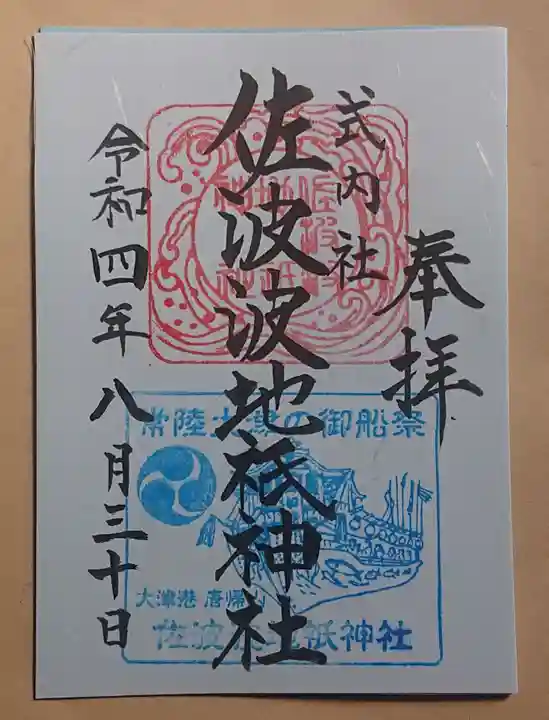 奉拝
式内社
佐波波地祇神社
令和四年八月三十日
常陸大津の御船祭
大津港 唐帰山
佐波波地祇神社